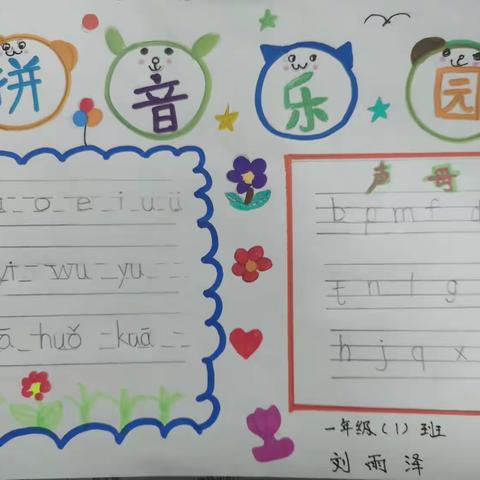 拼音乐园
o e i u ü
yi wu yu
huǒ kuā
声母
b p m f d
t n l g
h j q x
一年级(1)班
刘雨泽